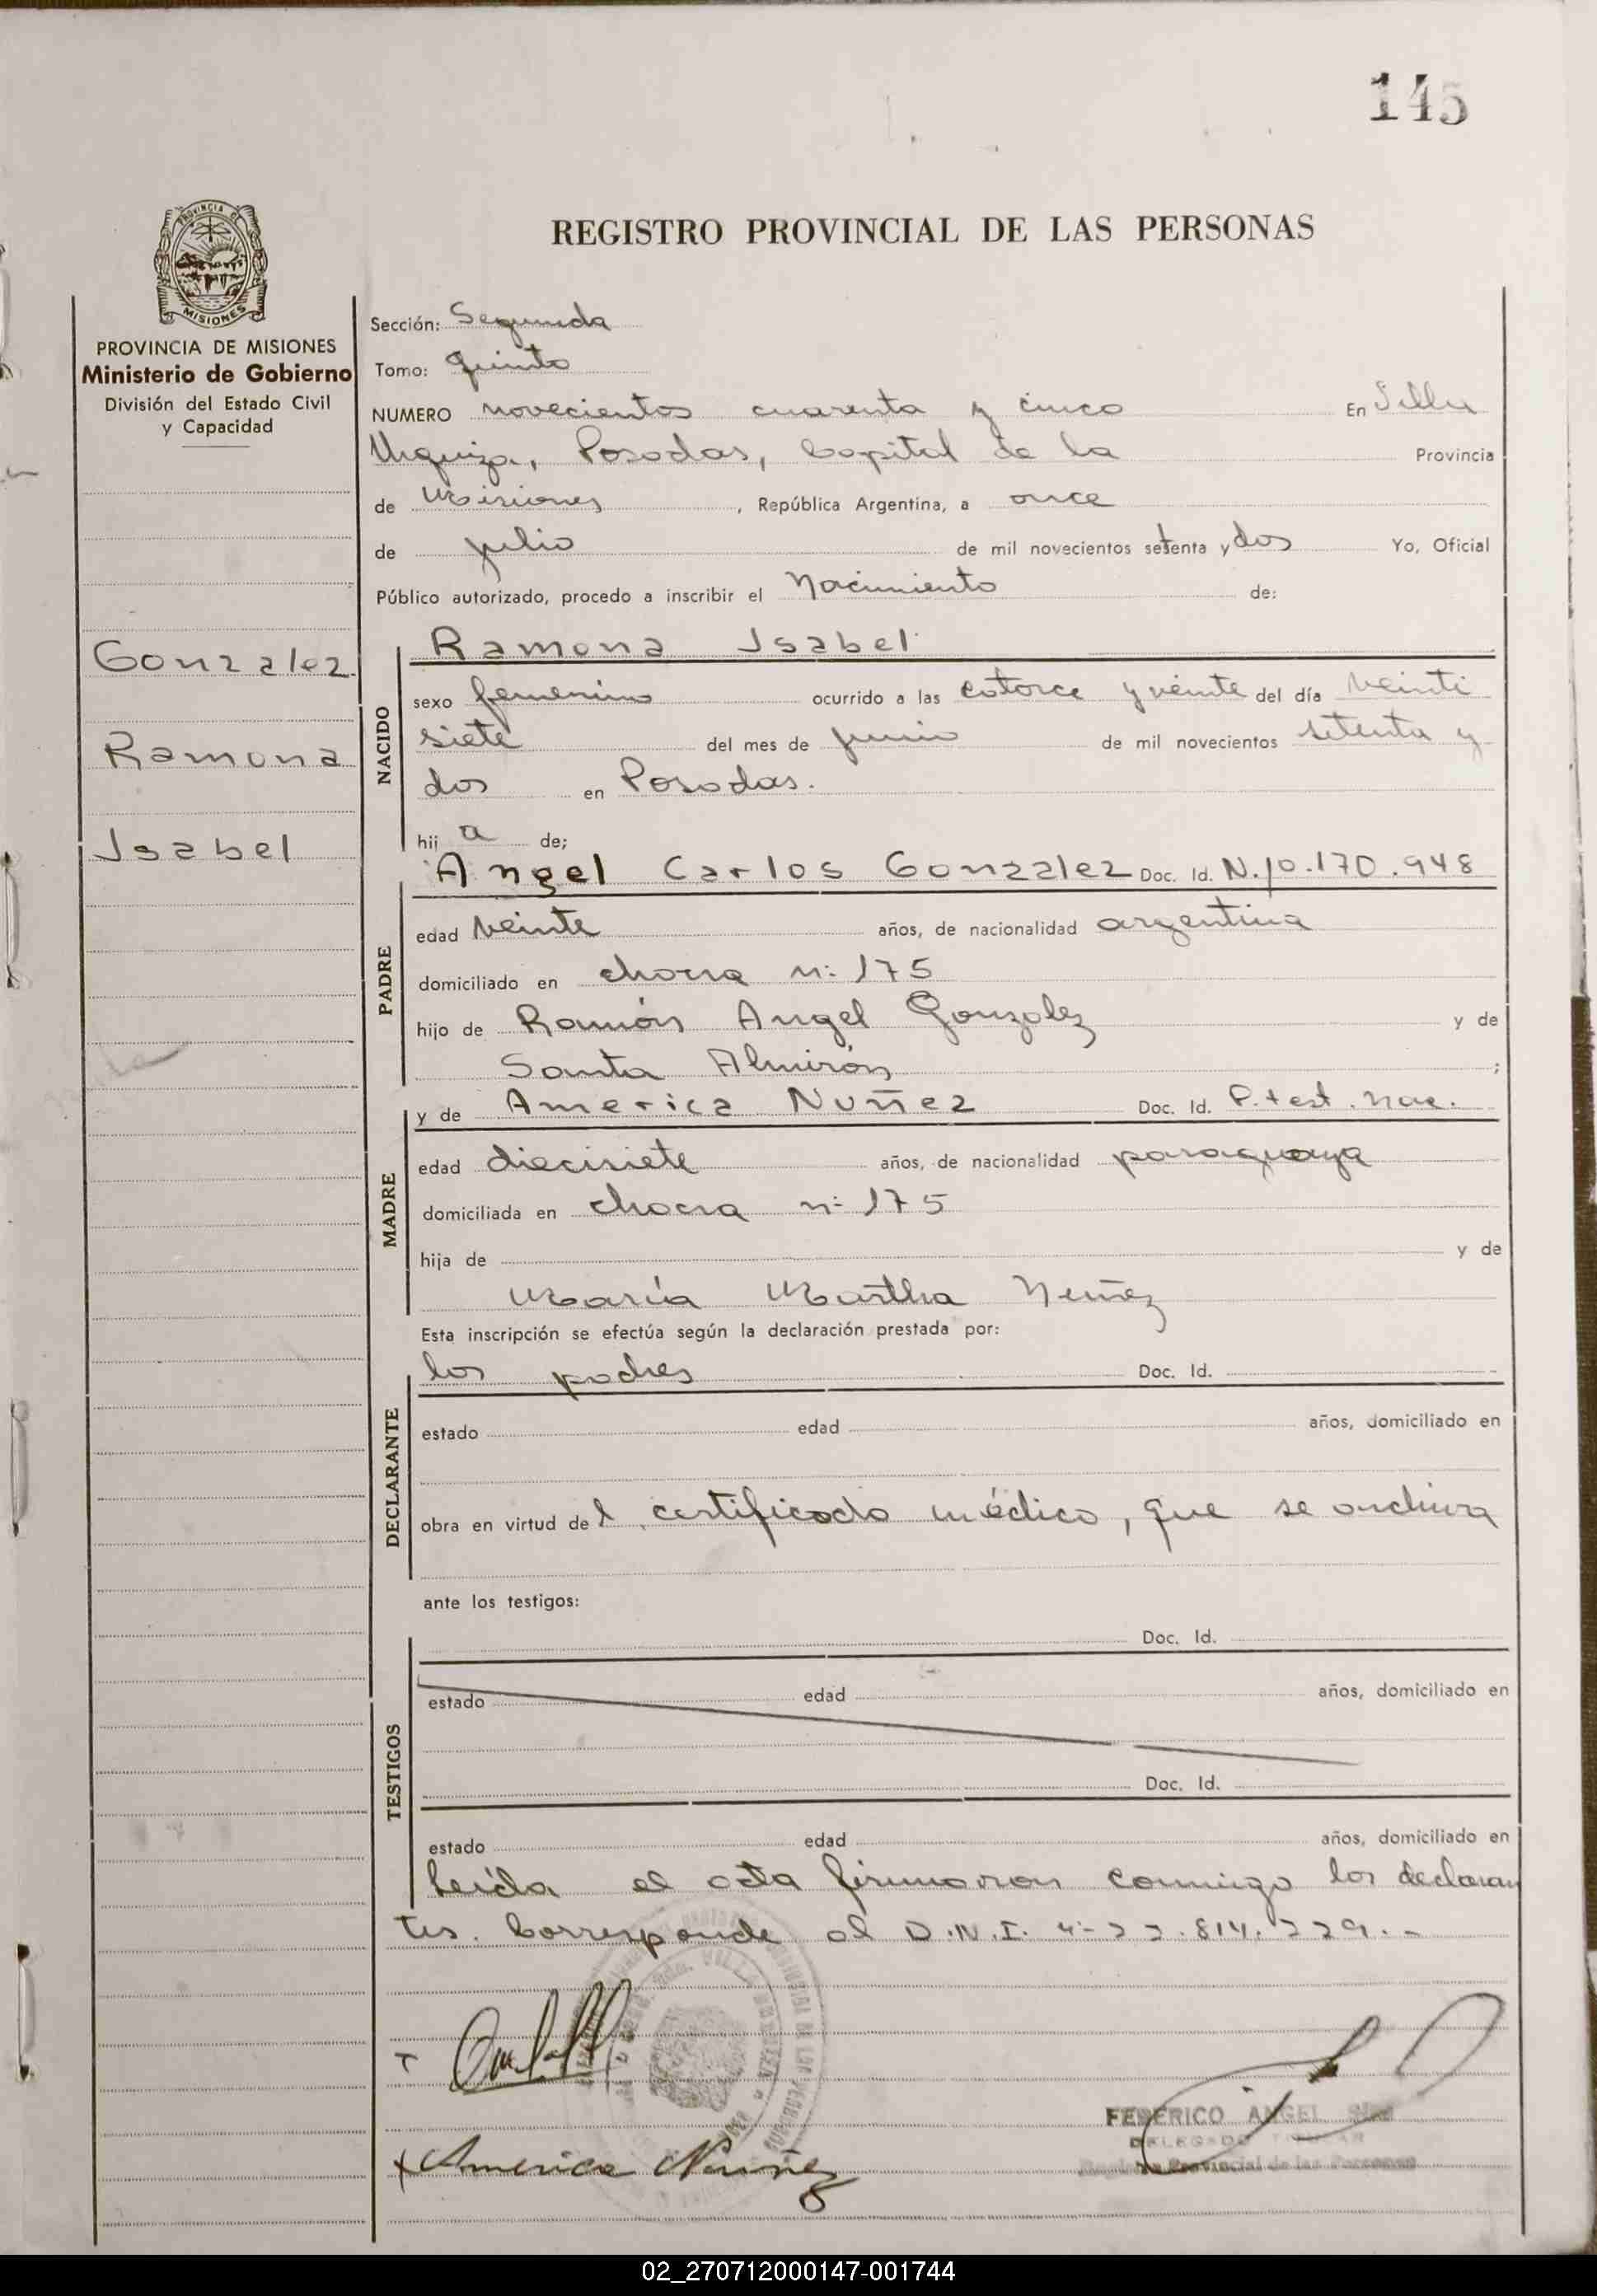 145
REGISTRO PROVINCIAL DE LAS PERSONAS
MISIONES
PROVINCIA DE MISIONES
Ministerio de Gobierno
División del Estado Civil
y Capacidad
Gonzalez
Ramona
Isabel
Sección: Segunda
Tomo: Quinto
NUMERO novecientos cuarenta y cinco En Villa
Urquiza, Posadas, Capital de la Provincia
de Misiones, República Argentina, a once
de julio de mil novecientos setenta y dos Yo, Oficial
Público autorizado, procedo a inscribir el Nacimiento de:
NACIDO
Ramona Isabel
sexo femenino ocurrido a las catorce y veinte del día veinti
siete del mes de junio de mil novecientos setenta y
dos en Posadas.
hij a de;
PADRE
Angel Carlos Gonzalez Doc. Id. N.10.170.948
edad veinte años, de nacionalidad argentina
domiciliado en chacra n: 175
hijo de Ramón Angel Gonzalez y de
Santa Almirón ;
MADRE
y de America Nuñez Doc. Id. P. test. nac.
edad diecisiete años, de nacionalidad paraguaya
domiciliada en chacra n: 175
hija de y de
María Martha Nuñez
Esta inscripción se efectúa según la declaración prestada por:
DECLARANTE
los padres Doc. Id.
estado edad años, domiciliado en
obra en virtud de l certificado médico, que se archiva
ante los testigos:
TESTIGOS
Doc. Id.
estado edad años, domiciliado en
Doc. Id.
estado edad años, domiciliado en
Leída el acta firmaron conmigo los declaran
tes. Corresponde al D.N.I. n- 22.814.229.-
America Nuñez
FEDERICO ANGEL
DELEGADO TITULAR
Registro Provincial de las Personas
02_270712000147-001744